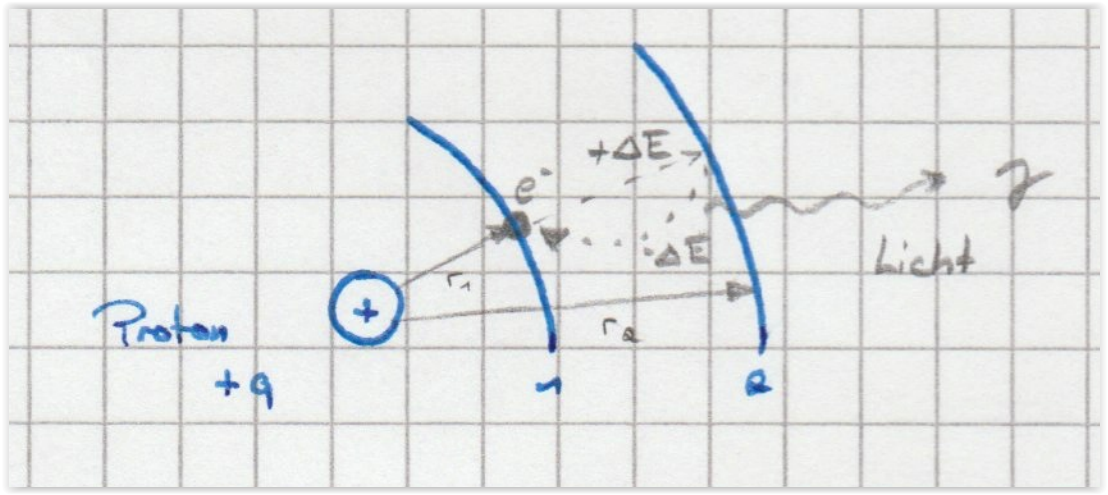 +ΔE
e⁻
ΔE
Licht
r₁
+
r₂
Proton
+q
1
2